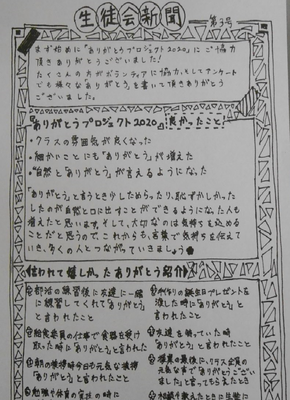 生徒会新聞
第3号
まず始めに「ありがとうプロジェクト2020」にご協力
頂きありがとうございました!
たくさんの方がボランティアに協力、そしてアンケート
でも様々な「ありがとう」を書いて頂きありがとう
ございました。
『ありがとうプロジェクト2020』良かったこと!
・クラスの雰囲気が良くなった
・細かいことにも「ありがとう」が増えた
・自然と「ありがとう」が言えるようになった
「ありがとう」と言うとき少しためらったり、恥ずかしかった
したのが自然と口に出すことができるようになった人も
増えたと思います。そして、大切なのは気持ちを込める
ことだと思うので、これからも、言葉で気持ちを伝えて
いき、多くの人とつながっていきましょう
言われて嬉しかったありがとう紹介
部活の練習後に友達に一緒
に練習してくれて「ありがとう」
と言われたこと
給食委員の仕事で食器を受け
取った時に「ありがとう」と言われた
朝の挨拶時今日も元気な挨拶
「ありがとう」と言われたこと
手作りの誕生日プレゼントを
渡した時に「ありがとう」
と言われたこと
友達を待っていた時
「ありがとう」と言われたこと
授業の最後に、クラス全員の
元気な声で「ありがとうござい
ました」と言ってもらえたとき